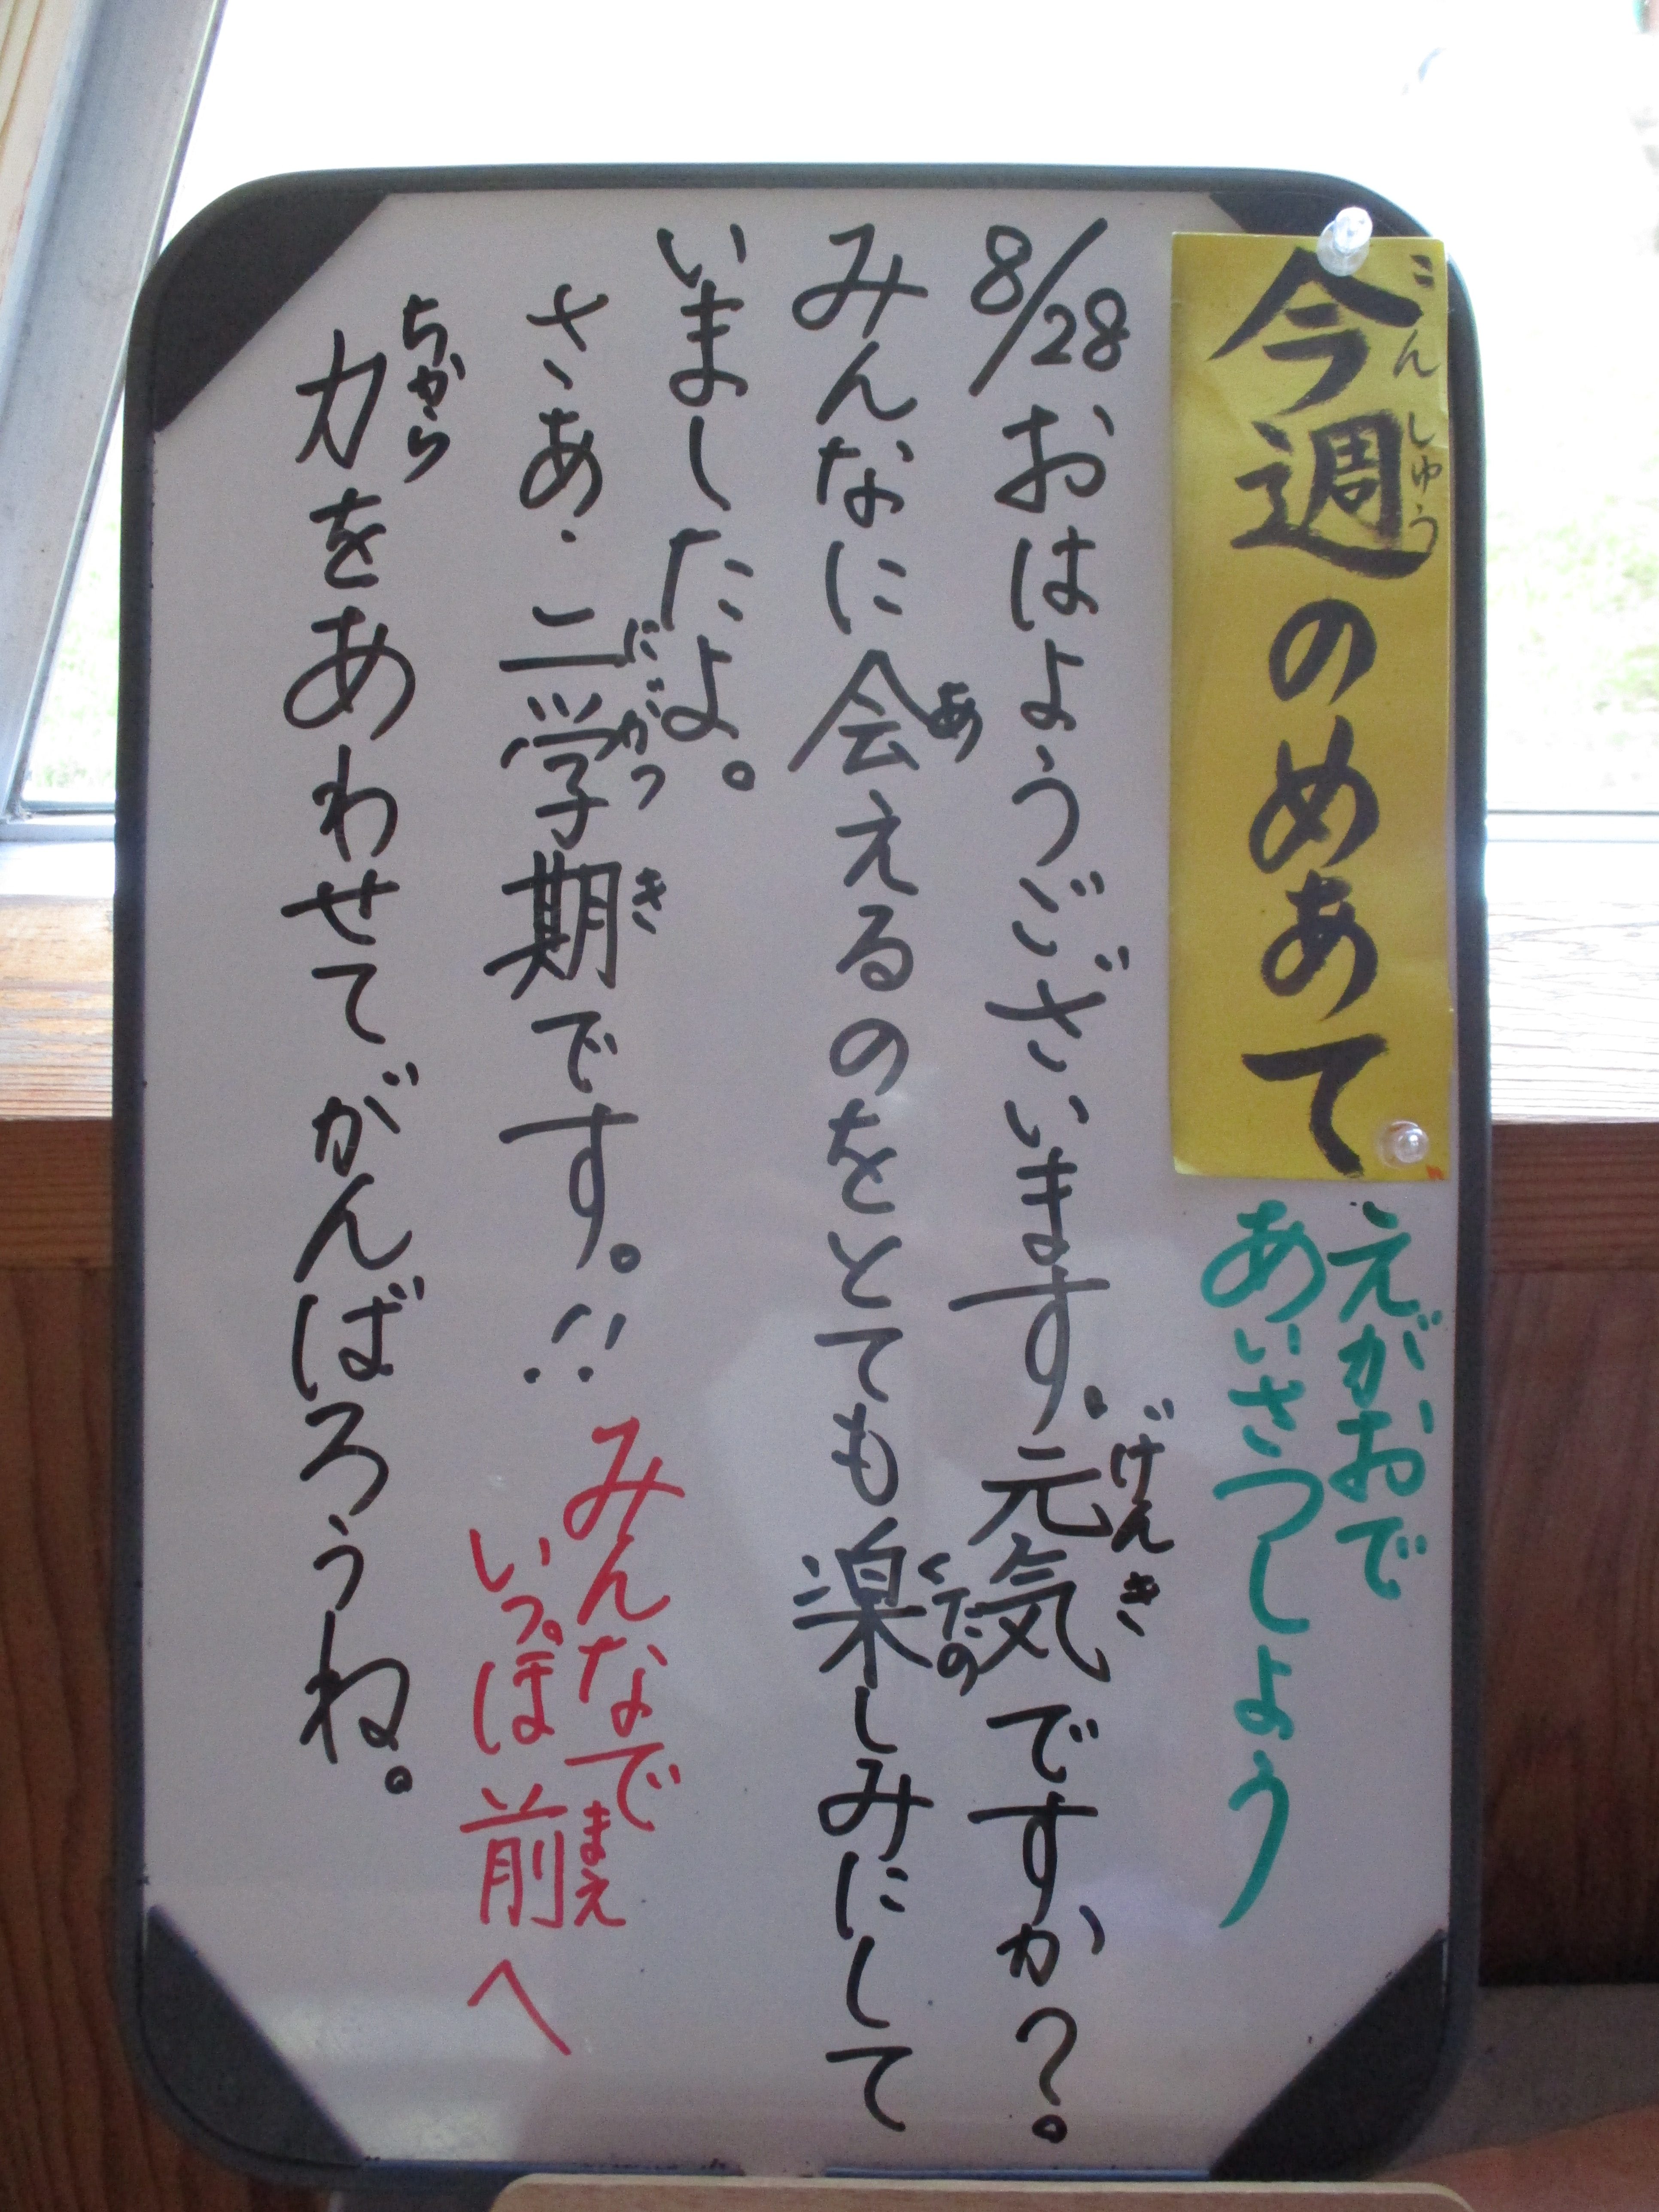 今週のめあて
こんしゅう
えがおで
あいさつしよう
8/28 おはようございます。元気ですか?。
げんき
みんなに会えるのをとても楽しみにして
あ
たの
いましたよ。
さあ・二学期です。!!
にがっき
みんなで
いっぽ前へ
まえ
力をあわせてがんばろうね。
ちから